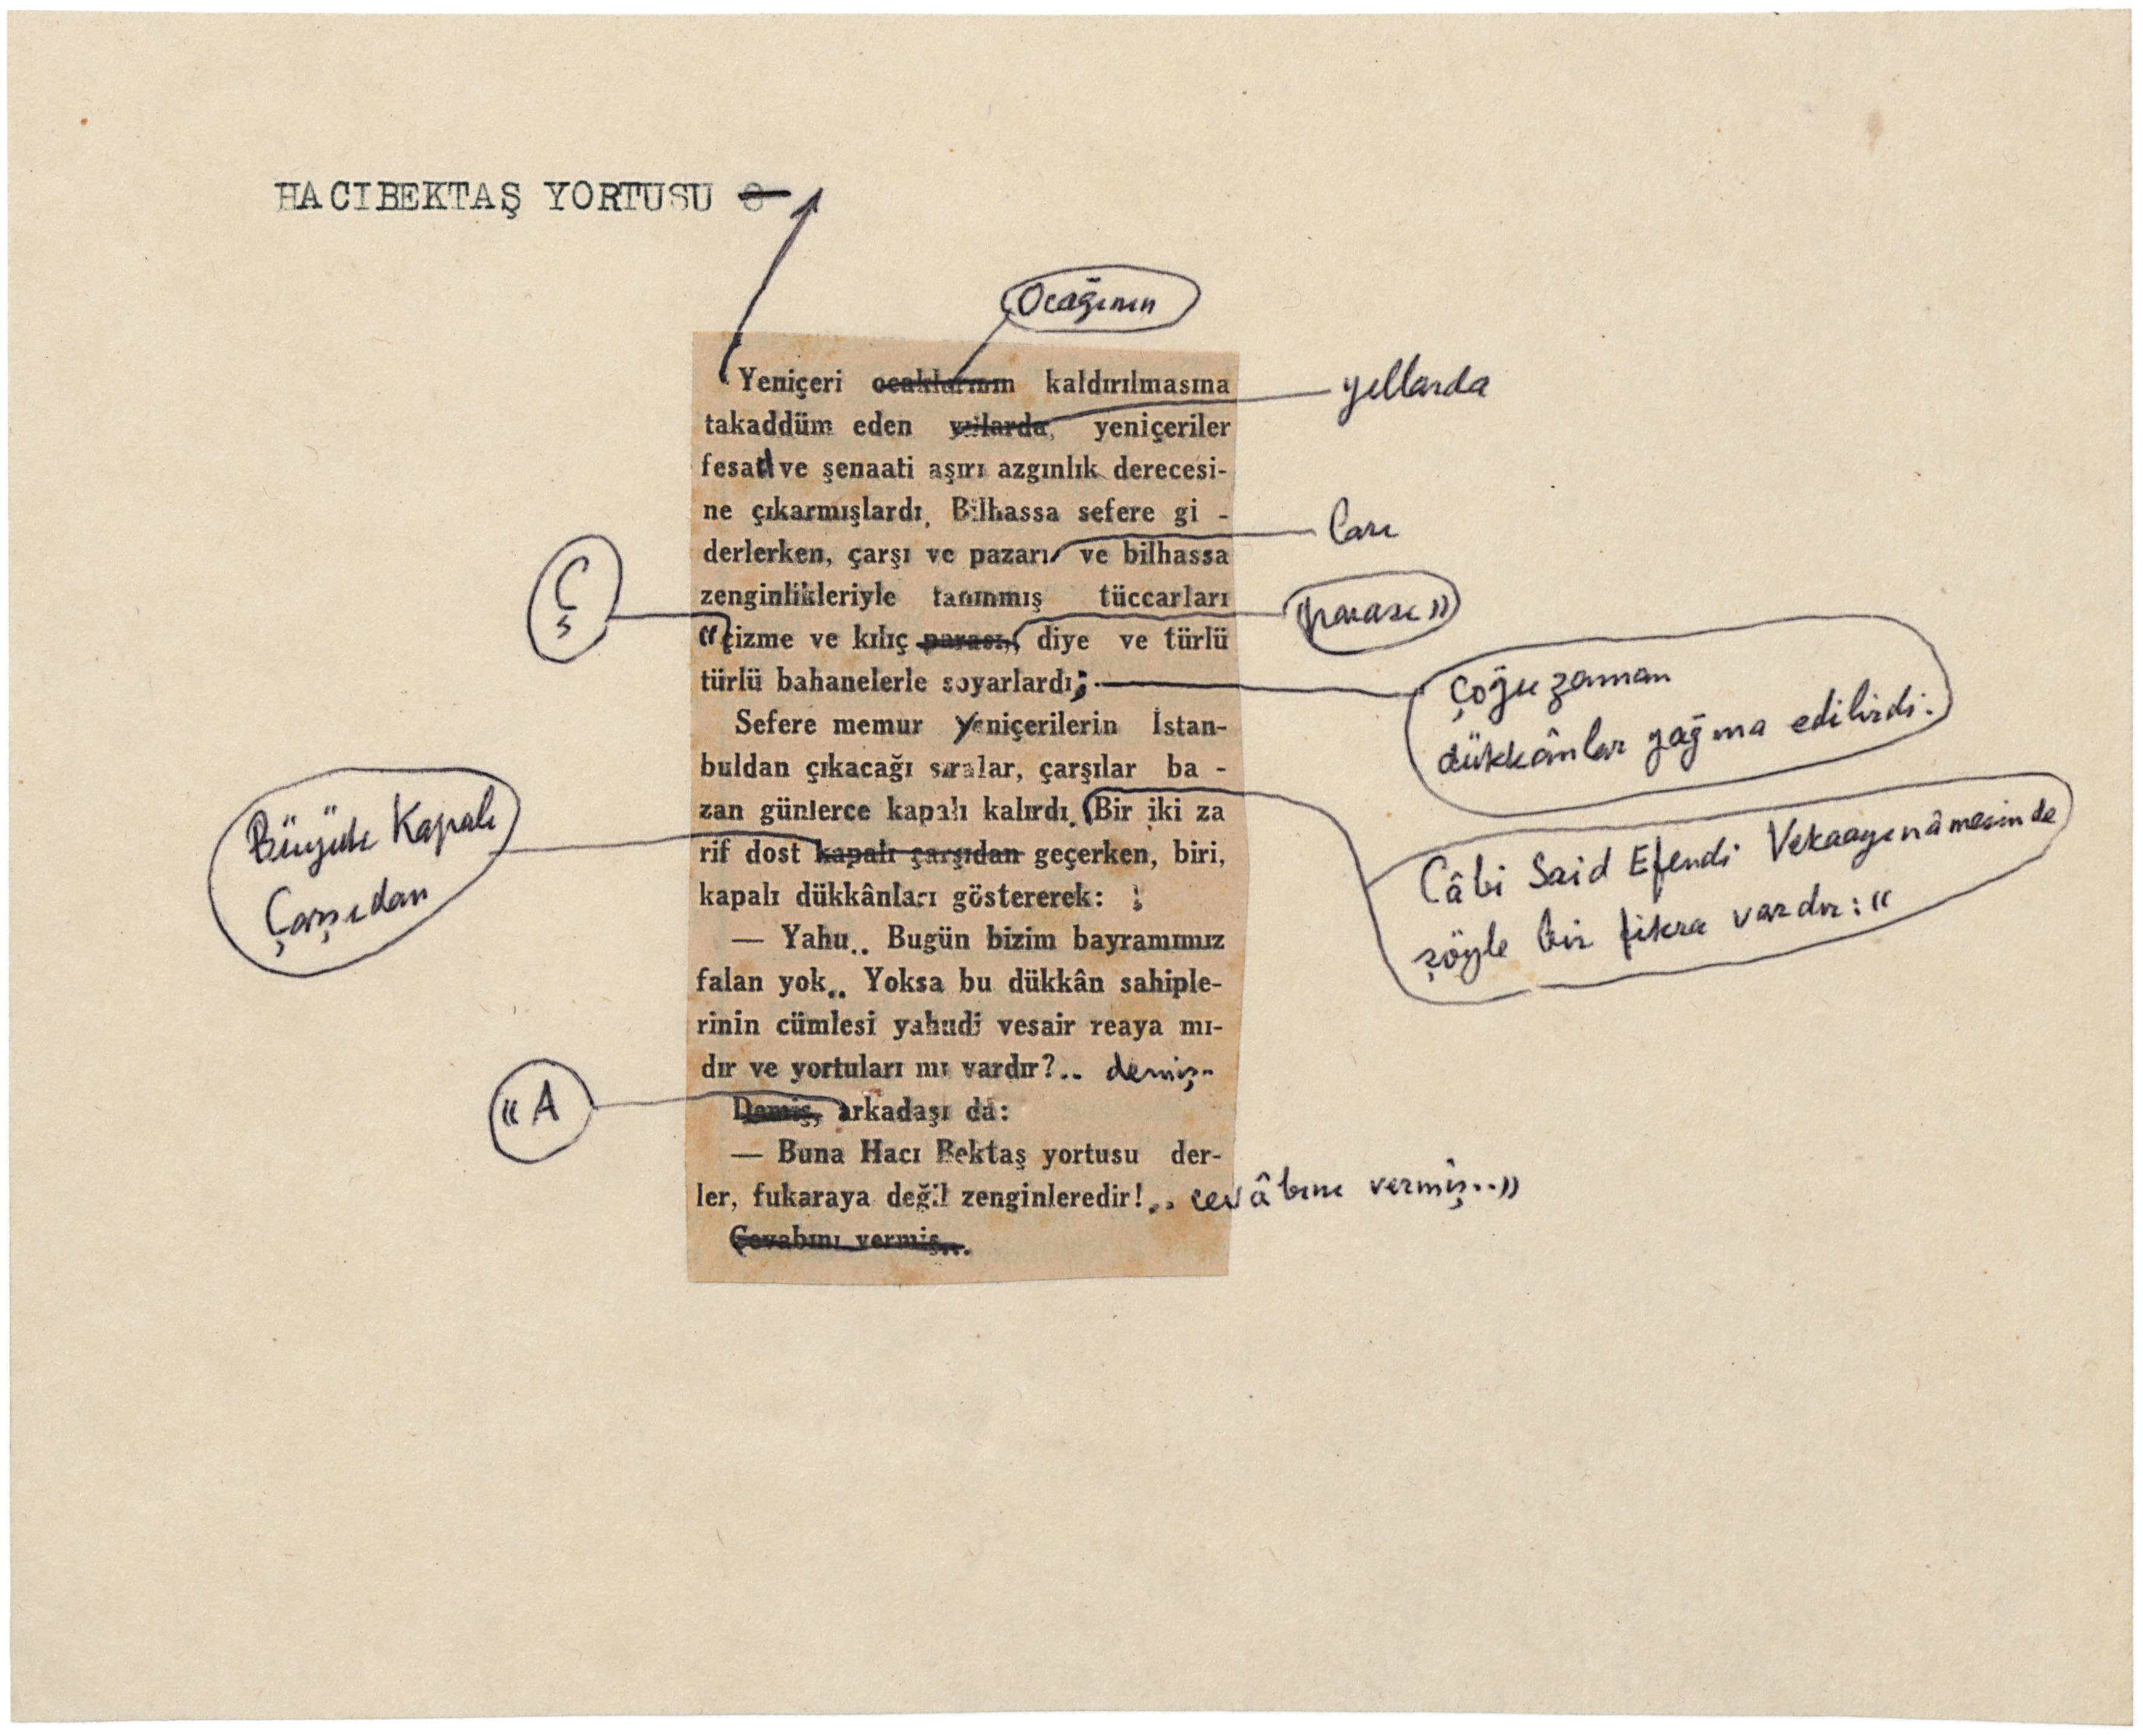 HACIBEKTAŞ YORTUSU
Ocağının
Yeniçeri ocaklarının kaldırılmasına
yıllarda
takaddüm eden yıllarda, yeniçeriler
fesad ve şenaati aşırı azgınlık derecesi-
ne çıkarmışlardı. Bilhassa sefere gi -
ları
derlerken, çarşı ve pazarı ve bilhassa
zenginlikleriyle tanınmış tüccarları
Ç
parası»
«çizme ve kılıç parası, diye ve türlü
türlü bahanelerle soyarlardı;
Çoğu zaman
dükkânlar yağma edilirdi.
Sefere memur Yeniçerilerin İstan-
buldan çıkacağı sıralar, çarşılar ba -
zan günlerce kapalı kalırdı. Bir iki za
Câbi Said Efendi Vekaayınâmesinde
şöyle bir fıkra vardır: «
Büyük Kapalı
Çarşıdan
rif dost kapalı çarşıdan geçerken, biri,
kapalı dükkânları göstererek: :
— Yahu.. Bugün bizim bayramımız
falan yok.. Yoksa bu dükkân sahiple-
rinin cümlesi yahudi vesair reaya mı-
dır ve yortuları mı vardır?.. demiş..
«A
Demiş, arkadaşı da:
— Buna Hacı Bektaş yortusu der-
ler, fukaraya değil zenginleredir!.. cevâbını vermiş..»
Cevabını vermiş...